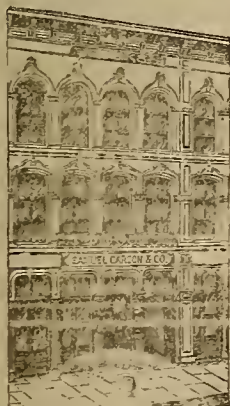 SAMUEL CARSON & CO.